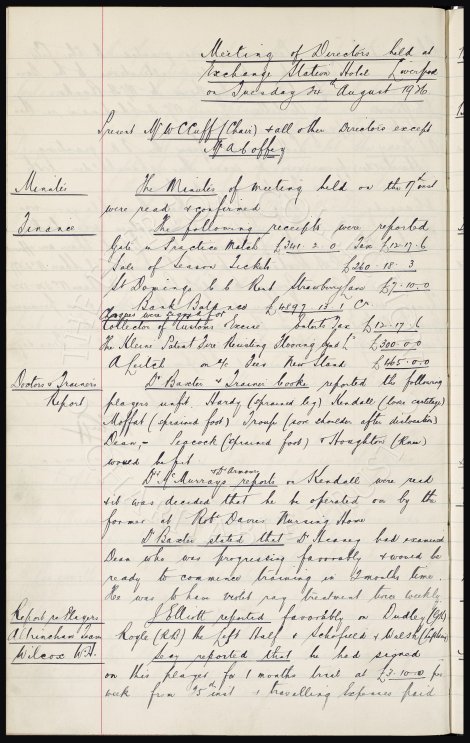 Meeting of Directors held at
Exchange Station Hotel Liverpool
on Tuesday 24th August 1926
Present Mr W C Cuff (Chair) & all other Directors except
Mr A Coffey
Minutes
The Minutes of meeting held on the 17th inst
were read & confirmed
Finance
The following receipts were reported
Gate in Practice Match £341. 2. 0 Tax £12.17.6
Sale of Season Tickets £260. 18. 3
St Domingo Rent Strawberry £7.10.0
Bank Balance £4897. 18. 1 Cr.
Cheques were signed for
Collector of Customs Excise Ents Tax £12.17.6
The Kleine Patent Fire Resisting Flooring £300.0.0
A Leitch on a/c New Stand £465.0.0
Doctors & Trainers
Report
Dr Baxter & Trainer Cooke reported the following
players unfit. Hardy (sprained leg) Kendall (loose cartilage)
Moffat (sprained foot) Troup (sore shoulder after dislocation)
Dean,- Peacock (sprained foot) & Houghton (Knee)
would be fit
Dr McMurrays & Dr reports on Kendall were read
& it was decided that he be operated on by the
former at Robt Davies Nursing Home
Dr Baxter stated that Dr had examined
Dean who was progressing favorably & would be
ready to commence training in 2 months time.
He was to have violet ray treatment twice weekly
Report re Players
Altrincham Team
J Elliott reported favorably on Dudley (GK)
Royle (RB) the Left Half & Schofield & Walsh
Wilcox W.H.
Secy reported that he had signed
on this player for 1 months trial at £3.10.0 per
week from 25th inst & travelling expenses paid